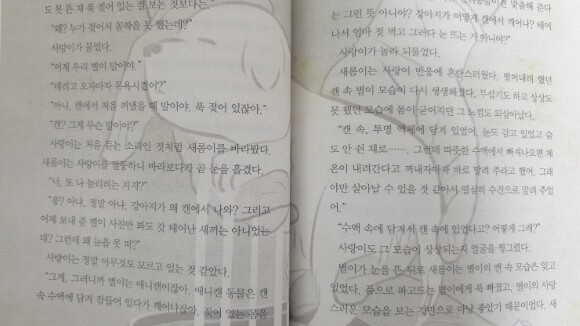 도 못 뜬 채 푹 젖어 있는 걸 보는 것보다는."
"왜? 누가 젖어서 몸짝을 못 했는데?"
사랑이가 물었다.
"어제 우리 별이 말이야."
"데리고 오자마자 목욕시켰어?"
"아니, 캔에서 처음 꺼냈을 때 말이야. 푹 젖어 있잖아."
"캔? 그게 무슨 말이야?"
사랑이는 처음 듣는 소리인 것처럼 새롬이를 바라봤다.
새롬이는 사랑이를 멀뚱하니 바라보다가 곧 눈을 흘겼다.
"너, 또 나 놀리려는 거지?"
"응? 아냐, 정말 아냐. 강아지가 왜 캔에서 나와? 그리고
어제 보내 준 별이 사진만 봐도 갓 태어난 새끼는 아니었는
데? 그런데 왜 눈을 못 떠?"
사랑이는 정말 아무것도 모르고 있는 것 같았다.
"그게, 그러니까 별이는 애니캔이잖아. 애니캔 동물은 캔
속 수액에 담겨 잠들어 있다가 깨어나잖아. 젖어 있는 몸을
맞춤해 준다
는 그런 뜻 아니야? 강아지가 어떻게 캔에서 깨어나? 태어
나서 엄마 젖 먹고 그러다 눈 뜨는 거 아니야?"
사랑이가 놀라 되물었다.
새롬이는 사랑이 반응에 혼란스러웠다. 떨어내려 했던
캔 속 별이 모습이 다시 생생해졌다. 무섭기도 하고 상상도
못 했던 모습에 몸이 굳어지던 그 느낌도 되살아났다.
"캔 속, 투명 액체에 담겨 있었어. 눈도 감고 있었고 숨
도 안 쉰 채로……. 그런데 따뜻한 수액에서 빠져나오면 체
온이 내려간다고 꺼내자마자 바로 말려 주라고 했어. 그래
야만 살아날 수 있을 것 같아서 열심히 수건으로 말려 주었
어."
"수액 속에 담겨서 캔 속에 있었다고? 어떻게 그래?"
사랑이도 그 모습이 상상되는지 얼굴을 찡그렸다.
별이가 눈을 뜬 뒤로 새롬이는 별이의 캔 속 모습은 잊고
있었다. 품으로 파고드는 별이에게 푹 빠졌고, 별이의 사랑
스러운 모습을 보는 것만으로 마냥 좋았기 때문이었다. 새